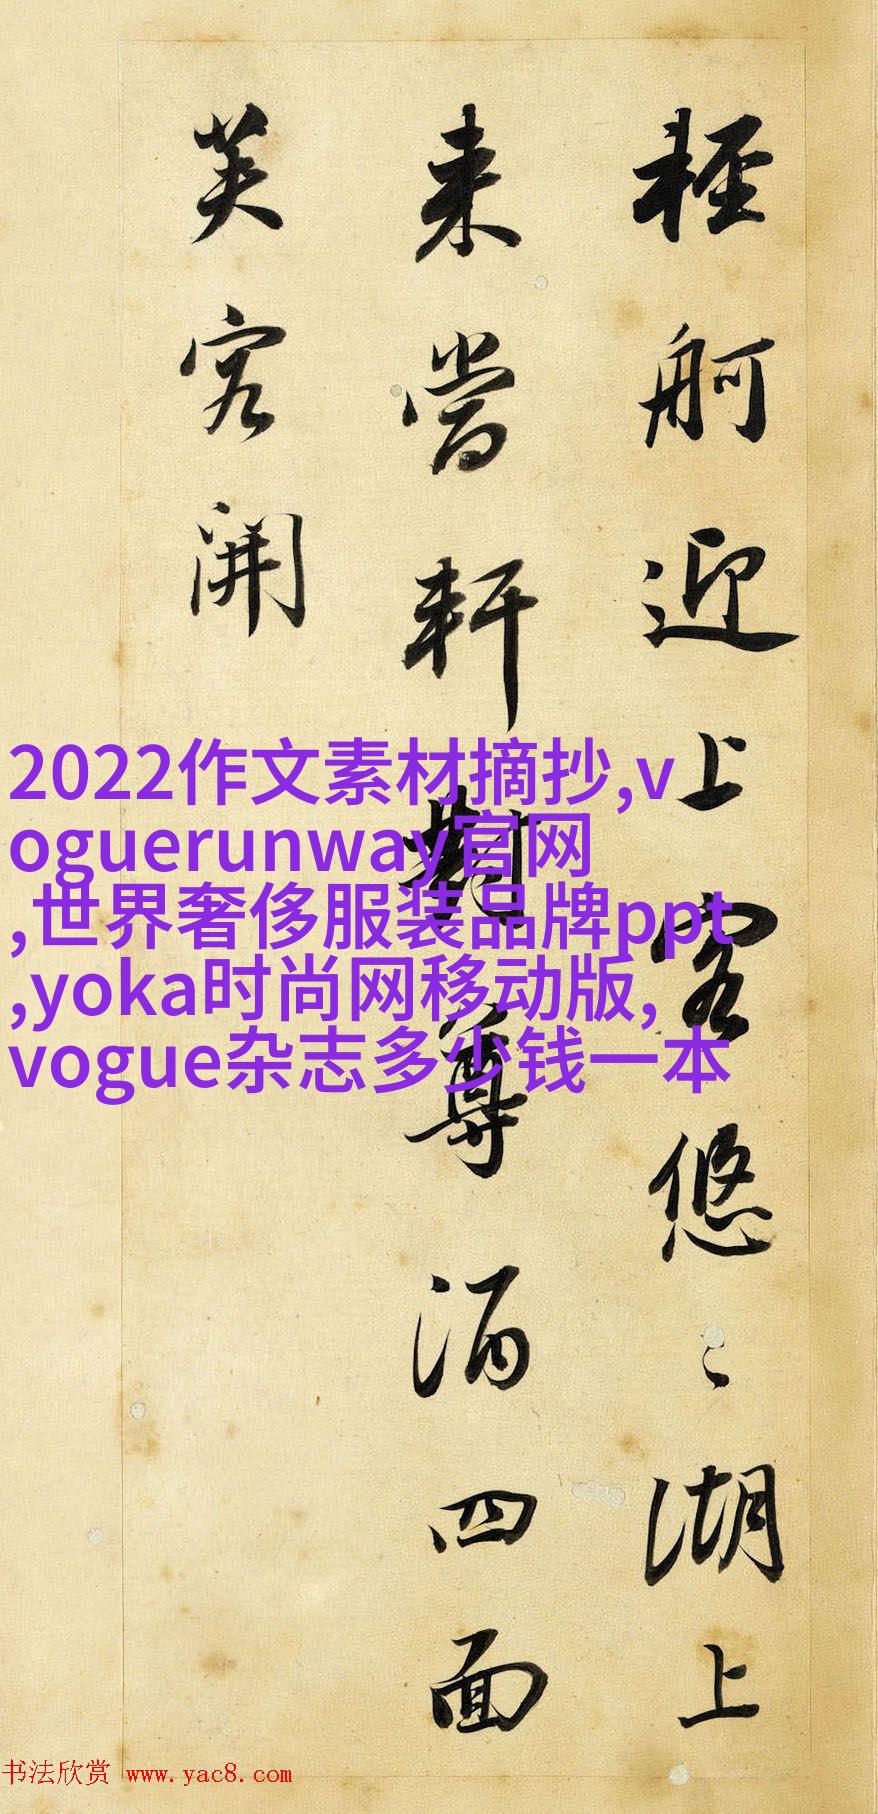 輕舸迎上客悠〻湖上
来當軒對尊酒四面
芙容開
2022作文素材摘抄,v
oguerunway官网
,世界奢侈服装品牌ppt
,yoka时尚网移动版,
vogue杂志多少钱一本
书法欣赏 www.yac8.com